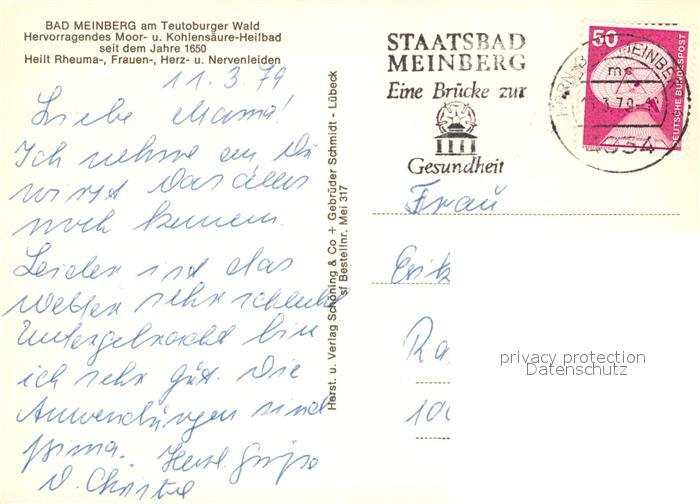 BAD MEINBERG am Teutoburger Wald
Hervorragendes Moor- u. Kohlensäure-Heilbad
seit dem Jahre 1650
Heilt Rheuma-, Frauen-, Herz- u. Nervenleiden
11.3.79
Liebe Mama!
Ich nehme an, Du
wirst das alles
noch kennen.
Leider ist das
Wetter sehr schlecht
Untergebracht bin
ich sehr gut. Die
Anwendungen sind
prima. Herzl. Grüße
D. Christel
Herst. u. Verlag Schöning & Co + Gebrüder Schmidt - Lübeck
sf Bestellnr. Mei 317
STAATSBAD
MEINBERG
Eine Brücke zur
Gesundheit
50
DEUTSCHE BUNDESPOST
HORN-BAD MEINBERG
mc
3.79
4934
Frau
Erik
Ra
100
privacy protection
Datenschutz